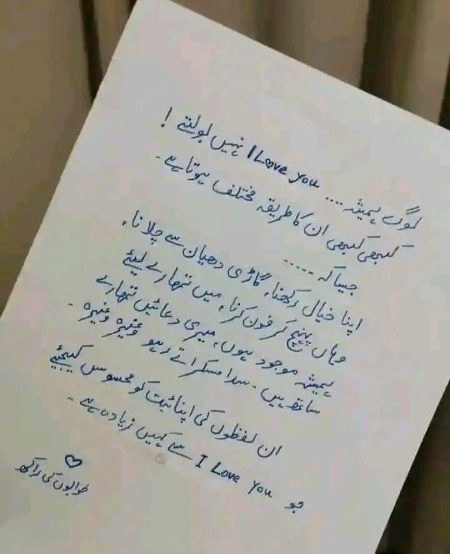 لوگ ہمیشہ .... I Love you نہیں بولتے !
کبھی کبھی ان کا طریقہ مختلف ہوتا ہے ۔
جیسا کہ .....
اپنا خیال رکھنا، گاڑی دھیان سے چلانا،
وہاں پہنچ کر فون کرنا، میں تمھارے لیئے
ہمیشہ موجود ہوں، میری دعائیں تمھارے
ساتھ ہیں ۔ سدا مسکراتے رہو وغیرہ وغیرہ ۔
ان لفظوں کی اپنائیت کو محسوس کیجیئے
جو I Love You سے کہیں زیادہ ہے ۔
خوابوں کی راکھ